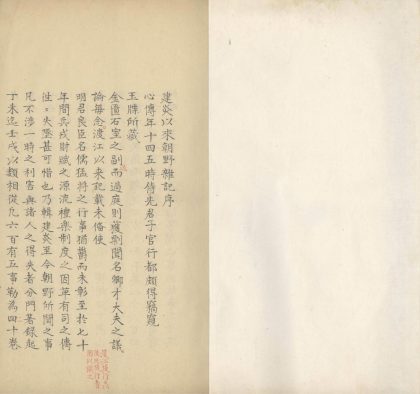 建炎以來朝野雜記序
心傳年十四五時侍先君子官行都頗得竊窺
玉牒所藏
金匱石室之副而過庭則獲剽聞名卿才大夫之議
論每念渡江以來記載未備使
明君良臣名儒猛將之行事猶鬱而未彰至於七十
年間兵戎財賦之源流禮樂制度之因革有司之傳
往往失墜甚可惜也乃輯建炎至今朝野所聞之事
凡不涉一時之利害與諸人之得失者分門著錄起
丁未迄壬戌以類相從凡六百有五事勒為四十卷